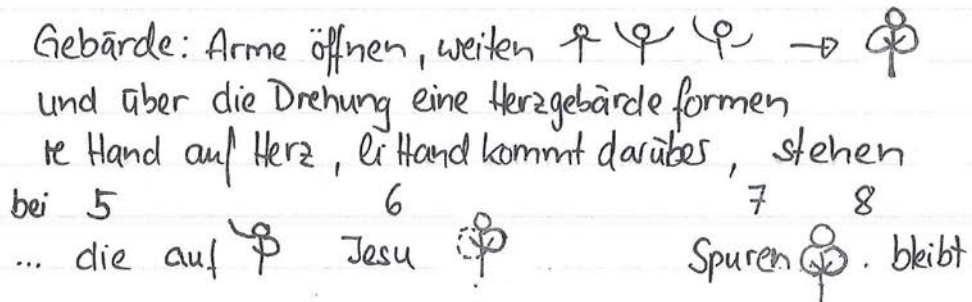 Gebärde: Arme öffnen, weiten
und über die Drehung eine Herzgebärde formen
re Hand auf Herz, li Hand kommt darüber, stehen
bei 5 6 7 8
... die auf Jesu Spuren . bleibt